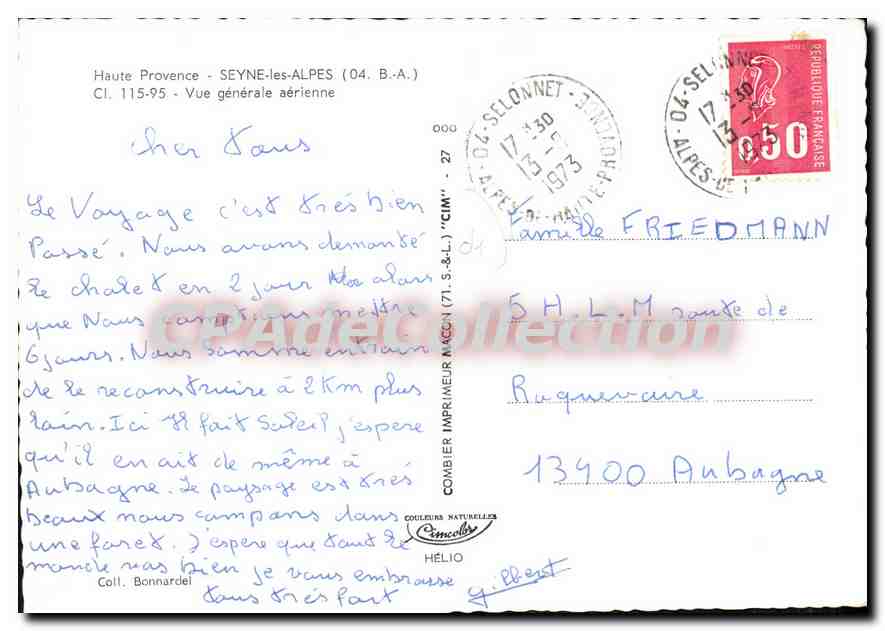 Haute Provence - SEYNE-les-ALPES (04. B.-A.)
Cl. 115-95 - Vue générale aérienne
cher tous
Le Voyage c'est trés bien
Passé. Nous avons demonté
le chalet en 2 jour alors
que Nous comptions mettre
6 jours. Nous somme entrain
de le reconstruire à 2 Km plus
loin. Ici Il fait Soleil j'espere
qu'il en ait de même à
Aubagne. Le paysage est trés
beaux nous campons dans
une foret. J'espere que tout le
monde vas bien je vous embrasse
tous trés fort
gilbert
Coll. Bonnardel
COMBIER IMPRIMEUR MACON (71. S.-&-L.) "CIM" - 27 000
COULEURS NATURELLES
Cimcolor
HÉLIO
04-SELONNET
17H30
13-
1973
ALPES-DE-HAUTE-PROVENCE
04-SELONNE
17H30
13-
1973
ALPES-DE
RÉPUBLIQUE FRANÇAISE
0,50
04
Famille FRIEDMANN
5 H.L.M route de
Roquevaire
13400 Aubagne
CPAdeCollection